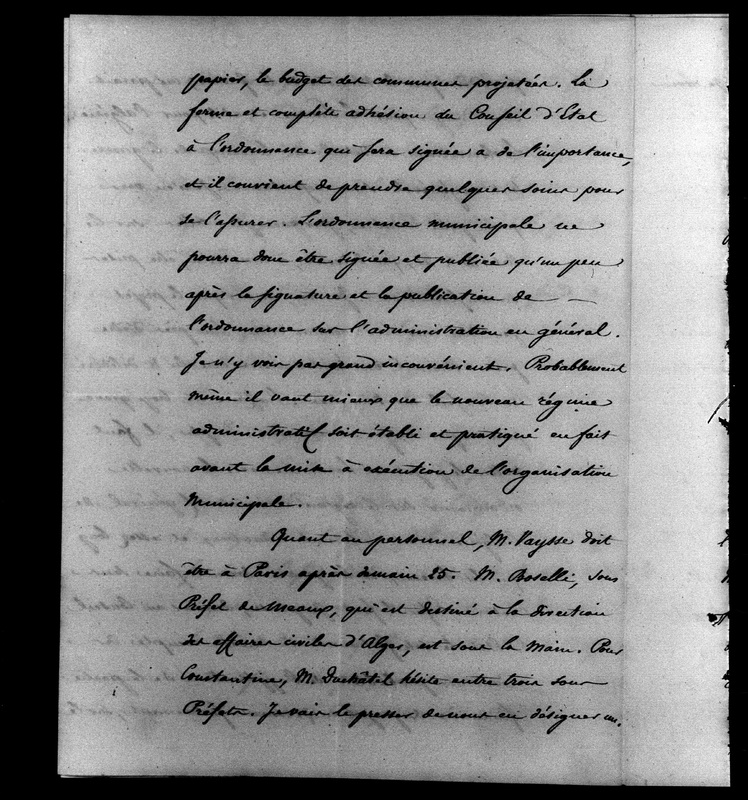 papier, le budget des communes projetées. La
ferme et complète adhésion du Conseil d'Etat
à l'ordonnance qui sera signée a de l'importance,
et il convient de prendre quelques soins pour
se l'assurer. L'ordonnance municipale ne
pourra donc être signée et publiée qu'un peu
après la signature et la publication de
l'ordonnance sur l'administration en général.
Je n'y vois pas grand inconvénient. Probablement
même il vaut mieux que le nouveau régime
administratif soit établi et pratiqué en fait
avant la mise à exécution de l'organisation
municipale.
Quant au personnel, M. Vaysse doit
être à Paris après demain 25. M. Roselli, sous
Préfet de Meaux, qui est destiné à la direction
des affaires civiles d'Alger, est sous la main. Pour
Constantine, M. Duchâtel hésite entre trois sous
Préfets. Je vais le presser de nous en désigner un.